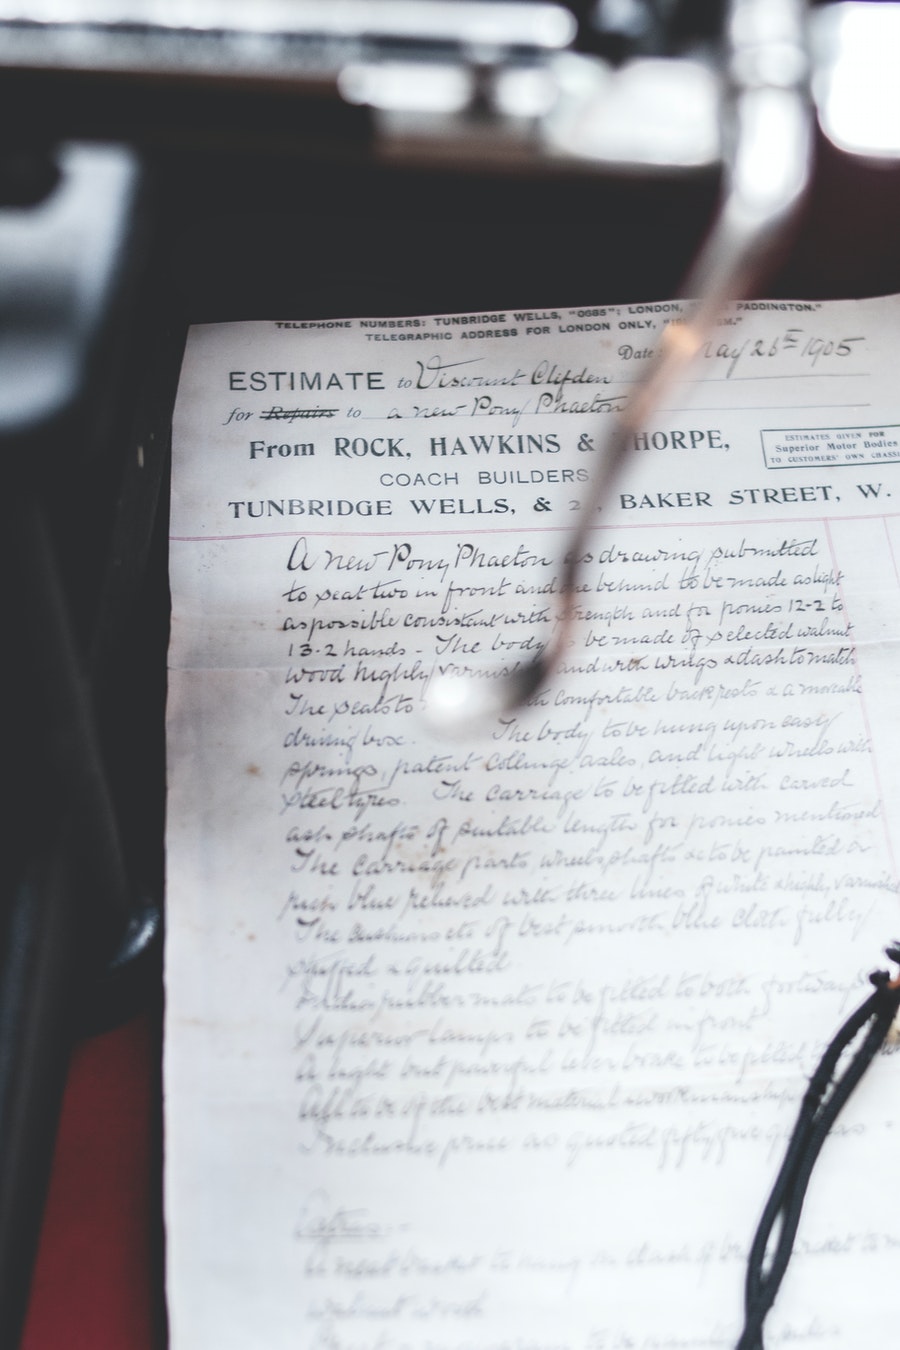 TELEPHONE NUMBERS: TUNBRIDGE WELLS, "0685"; LONDON, PADDINGTON."
TELEGRAPHIC ADDRESS FOR LONDON ONLY,
Date: May 26th 1905
ESTIMATE to Viscount Clifden
for Repairs to a new Pony Phaeton
From ROCK, HAWKINS & THORPE,
COACH BUILDERS,
TUNBRIDGE WELLS, & BAKER STREET, W.
ESTIMATES GIVEN FOR
Superior Motor Bodies
TO CUSTOMERS' OWN
A new Pony Phaeton as drawing submitted
to seat two in front and one behind to be made as light
as possible consistent with strength and for ponies 12-2 to
13.2 hands - The body to be made of selected walnut
wood highly varnished and with wings & dash to match
The seats to comfortable backrests & a moveable
driving box. The body to be hung upon easy
springs, patent Collinge axles, and light wheels with
steel tyres. The Carriage to be fitted with carved
ash shafts of suitable length for ponies mentioned
The Carriage parts, wheels, shafts &c to be painted
blue relieved with three lines of white & highly varnished
The cushions etc of best smooth blue cloth fully
stuffed & quilted
India rubber mats to be fitted to both footways
Superior lamps to be fitted in front
A light but powerful lever brake to be fitted
All to be of the best material & workmanship
Inclusive price as quoted fifty five
Extras
A neat to hang on dash of
walnut wood
to be